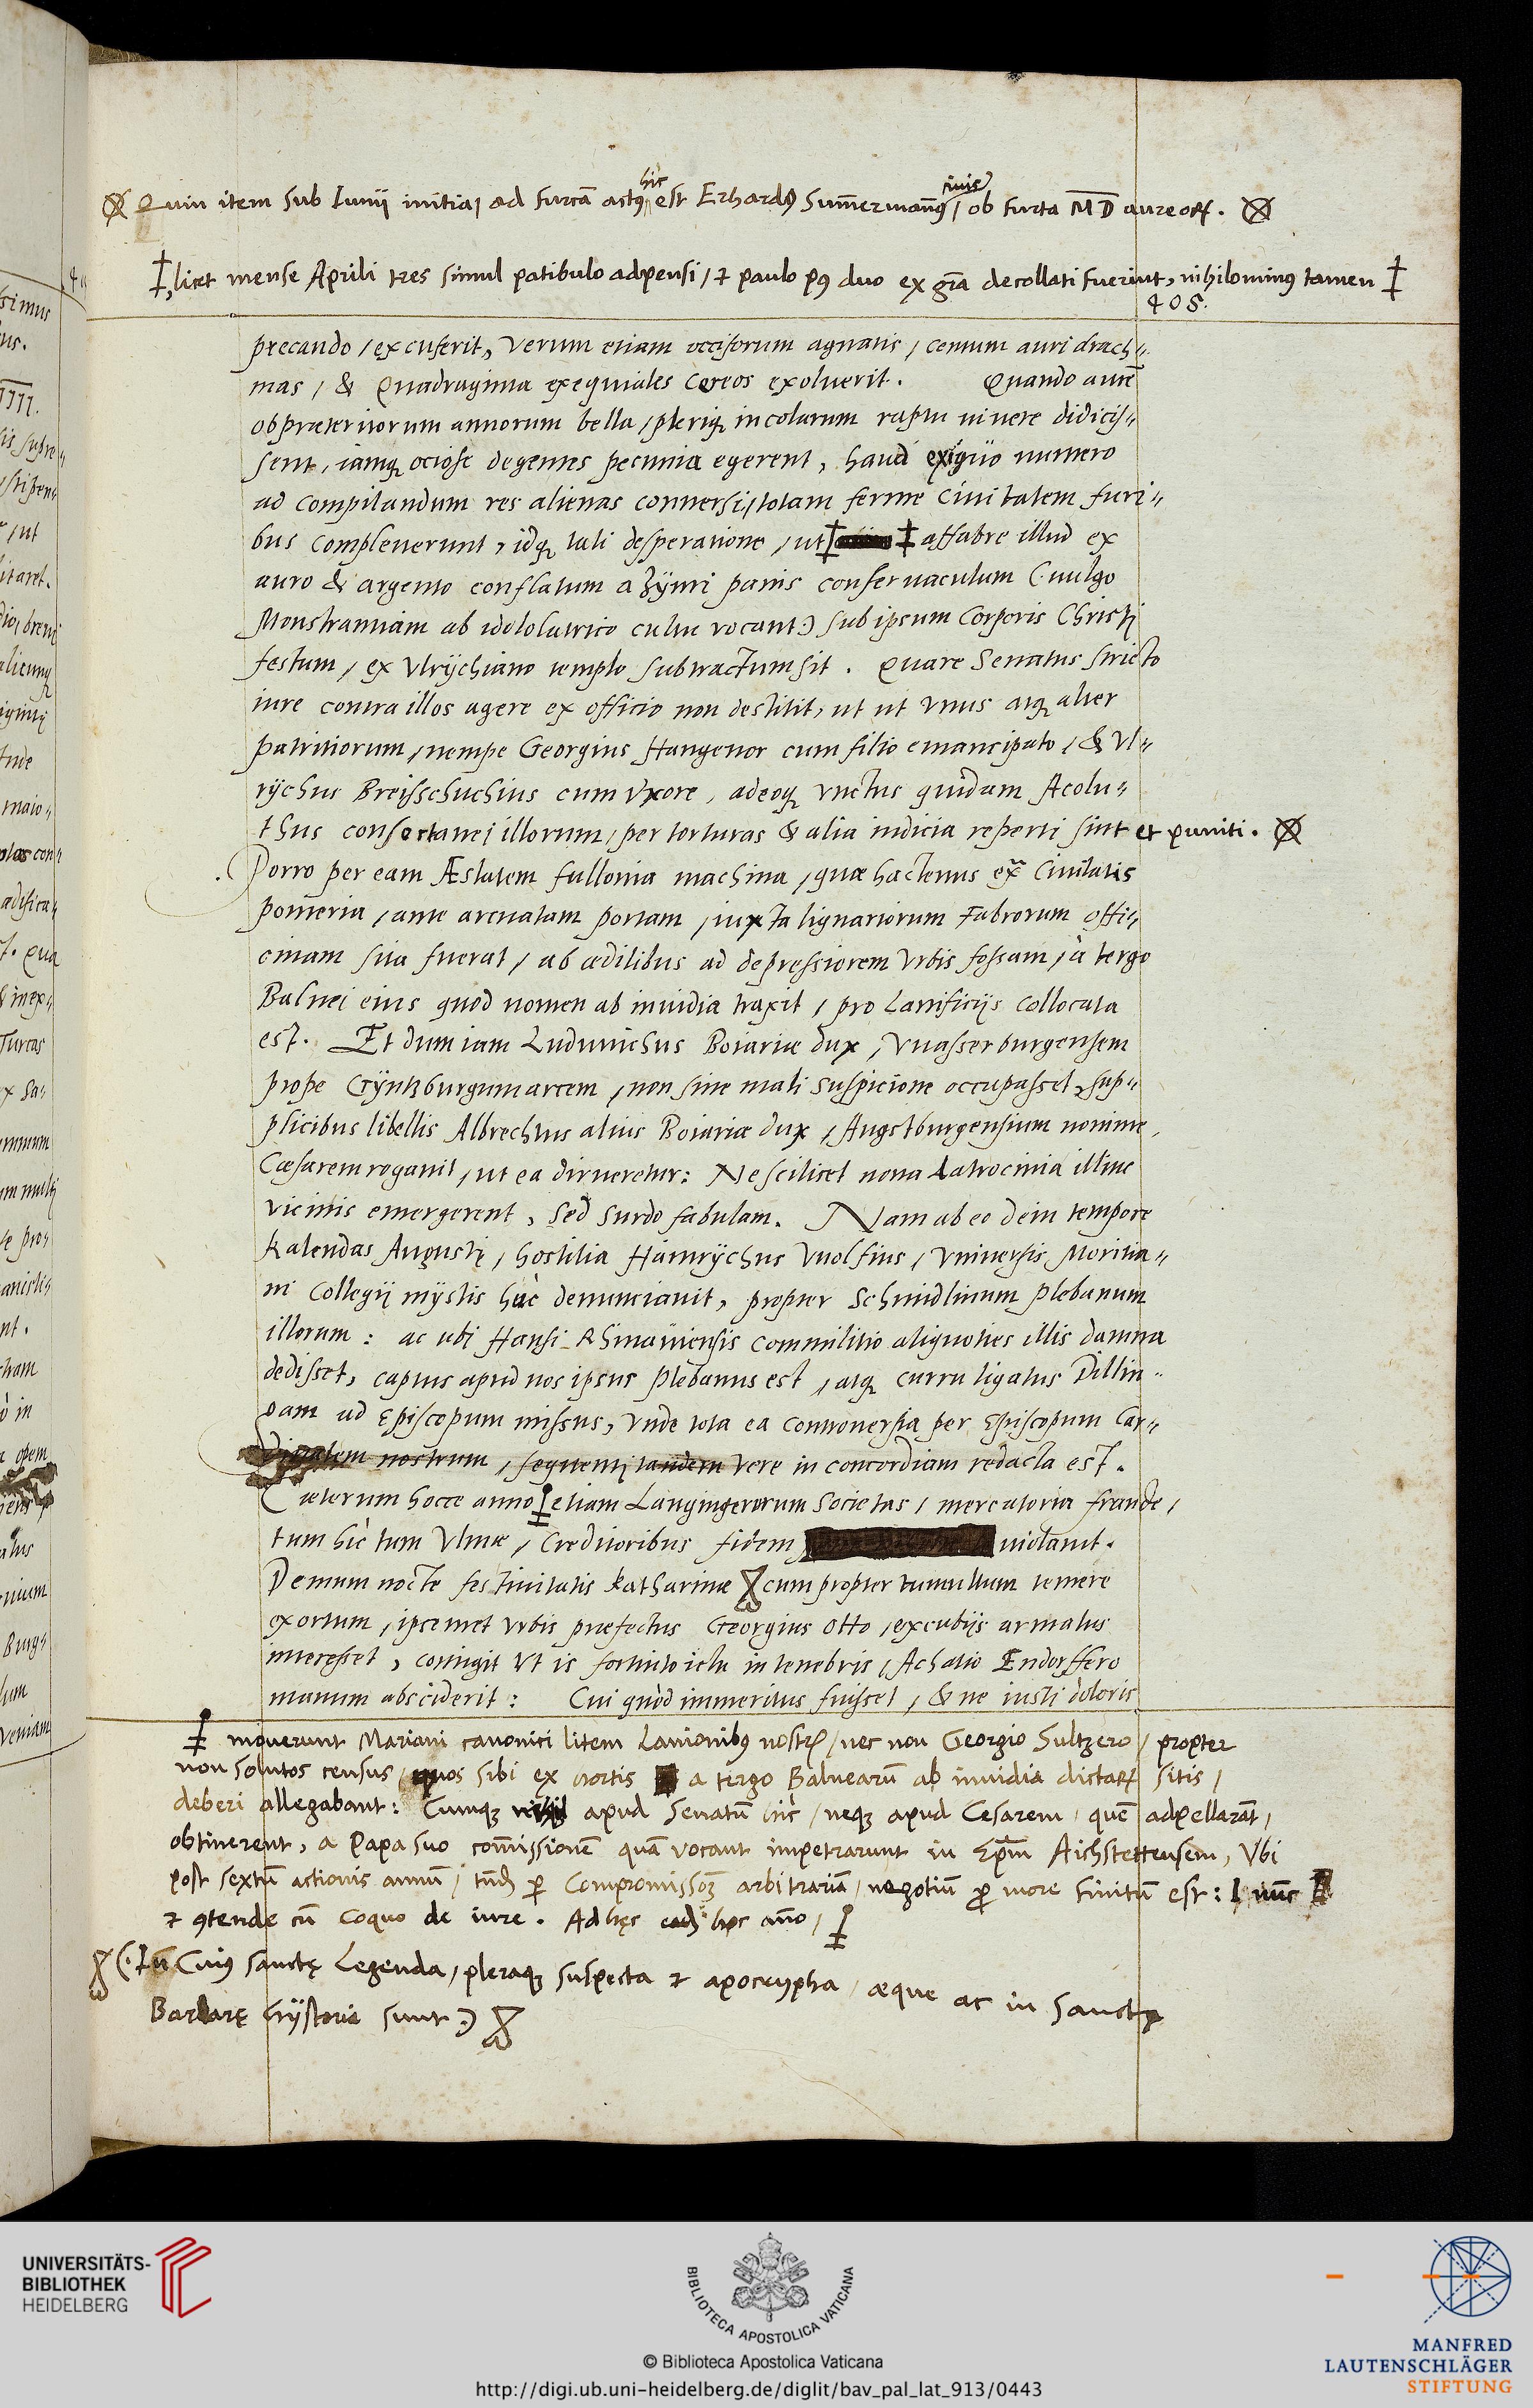 Quin item sub Iunij initia, ad furcã actꝰ hic est Erhardꝰ Sum̃ermañꝰ, ciuis ob furta M D aureoꝝ.
licet mense Aprili tres simul patibulo adpensi, & paulo pꝰ duo ex gr̃a decollati fuerint, nihilominꝰ tamen
405.
precando, excuserit, Verum etiam occisorum agnatis, centum auri drach-
mas, & Quadraginta exequiales Cereos exoluerit. Quando autẽ
ob præteritorum annorum bella, pleriqꝫ incolarum raptu uiuere didicis-
sent, iamqꝫ ociose degentes pecunia egerent, haud exiguo numero
ad compilandum res alienas conuersi, totam ferme Ciuitatem furi-
bus compleuerunt, idqꝫ tali desperatione, ut affabre illud ex
auro & argento conflatum azÿmi panis conseruaculum (: uulgo
Monstrantiam ab idololatrico cultu vocant:) sub ipsum Corporis Christi
festum, ex Vlrÿchiano templo subtractum sit. Quare Senatus stricto
iure contra illos agere ex officio non destitit, ut ut vnus atqꝫ alter
patritiorum, nempe Georgius Hangenor cum filio emancipato, & Vl-
rÿchus Breisschuchius cum Vxore, adeoqꝫ vnctus quidam Acolu-
thus consectanei illorum, per torturas & alia indicia reperti sint et puniti.
Porro per eam Æstatem fullonia machina, quæ hactenus ext̃ Ciuitatis
pomeria, ante arcuatam portam, iuxta lignariorum Fabrorum offi-
cinam sita fuerat, ab ædilibus ad depressiorem Vrbis fossam, à tergo
Balnei eius quod nomen ab inuidia traxit, pro Lanificijs collocata
est. Et dum iam Ludouichus Boiariæ dux, Vuasserburgensem
prope Gÿntzburgum arcem, non sine mali suspicione occupasset, sup-
plicibus libellis Albrechtus alius Boiariæ dux, Augstburgensium nomine,
Cæsarem rogauit, ut ea dirueretur: Ne scilicet noua Latrocinia illinc
vicinis emergerent, sed surdo fabulam. Nam ab eo dein tempore
Kalendas Augusti, hostilia Hainrÿchus Vuolfius, Vniuersis Moritia-
ni Collegij mÿstis huc denunciauit, propter Schmidlinum Plebanum
illorum: ac ubi Hansi Commilitio aliquoties illis damna
dedisset, captus apud nos ipsus Plebanus est, atqꝫ curru ligatus Dillin-
gam ad Episcopum missus, Vnde tota ea controuersia per Episcopum Car-
dinalem nostrum, sequenti tandem Vere in concordiam redacta est.
Cæterum hocce anno etiam Langingerorum Societas, mercatoria fraude,
tum hic tum Vlmæ, Creditoribus fidem uiolauit.
Demum nocte festiuitatis Katharinæ cum propter tumultum temere
exortum, ipsemet Vrbis præfectus Georgius Otto, excubijs armatus
interesset, contigit Vt is fortuito ictu in tenebris, Achatio Endorffero
manum absciderit: Cui quòd immeritus fuisset, & ne iusti doloris
mouerunt Mariani canonici litem Lanionibꝰ nostris, nec non Georgio Sultzero, propter
non solutos census, quos sibi ex hortis a tergo Balnearũ ab inuidia dictaꝝ sitis,
deberi allegabant: Cumqꝫ nihil apud Senatũ hic, neqꝫ apud Cesarem, quẽ adpellarãt,
obtinerent, a Papa suo com̃issionẽ quã vocant impetrarunt in Ep̃m Aichstettensem, Vbi
post sextũ actionis annũ, tñd per Compromissoꝫ arbitrariã, negotiũ pro more finitũ est: I nũc
& ꝯtende cũ coquo de iure. Ad hęc eod hoc año,
(: Cuiꝰ sanctę Legenda, pleraqꝫ suspecta & apocrypha, æque ac in Sanctę
Barbarę hÿstoria sunt :)
UNIVERSITÄTS-
BIBLIOTHEK
HEIDELBERG
BIBLIOTECA APOSTOLICA VATICANA
© Biblioteca Apostolica Vaticana
http://digi.ub.uni-heidelberg.de/diglit/bav_pal_lat_913/0443
MANFRED
LAUTENSCHLÄGER
STIFTUNG